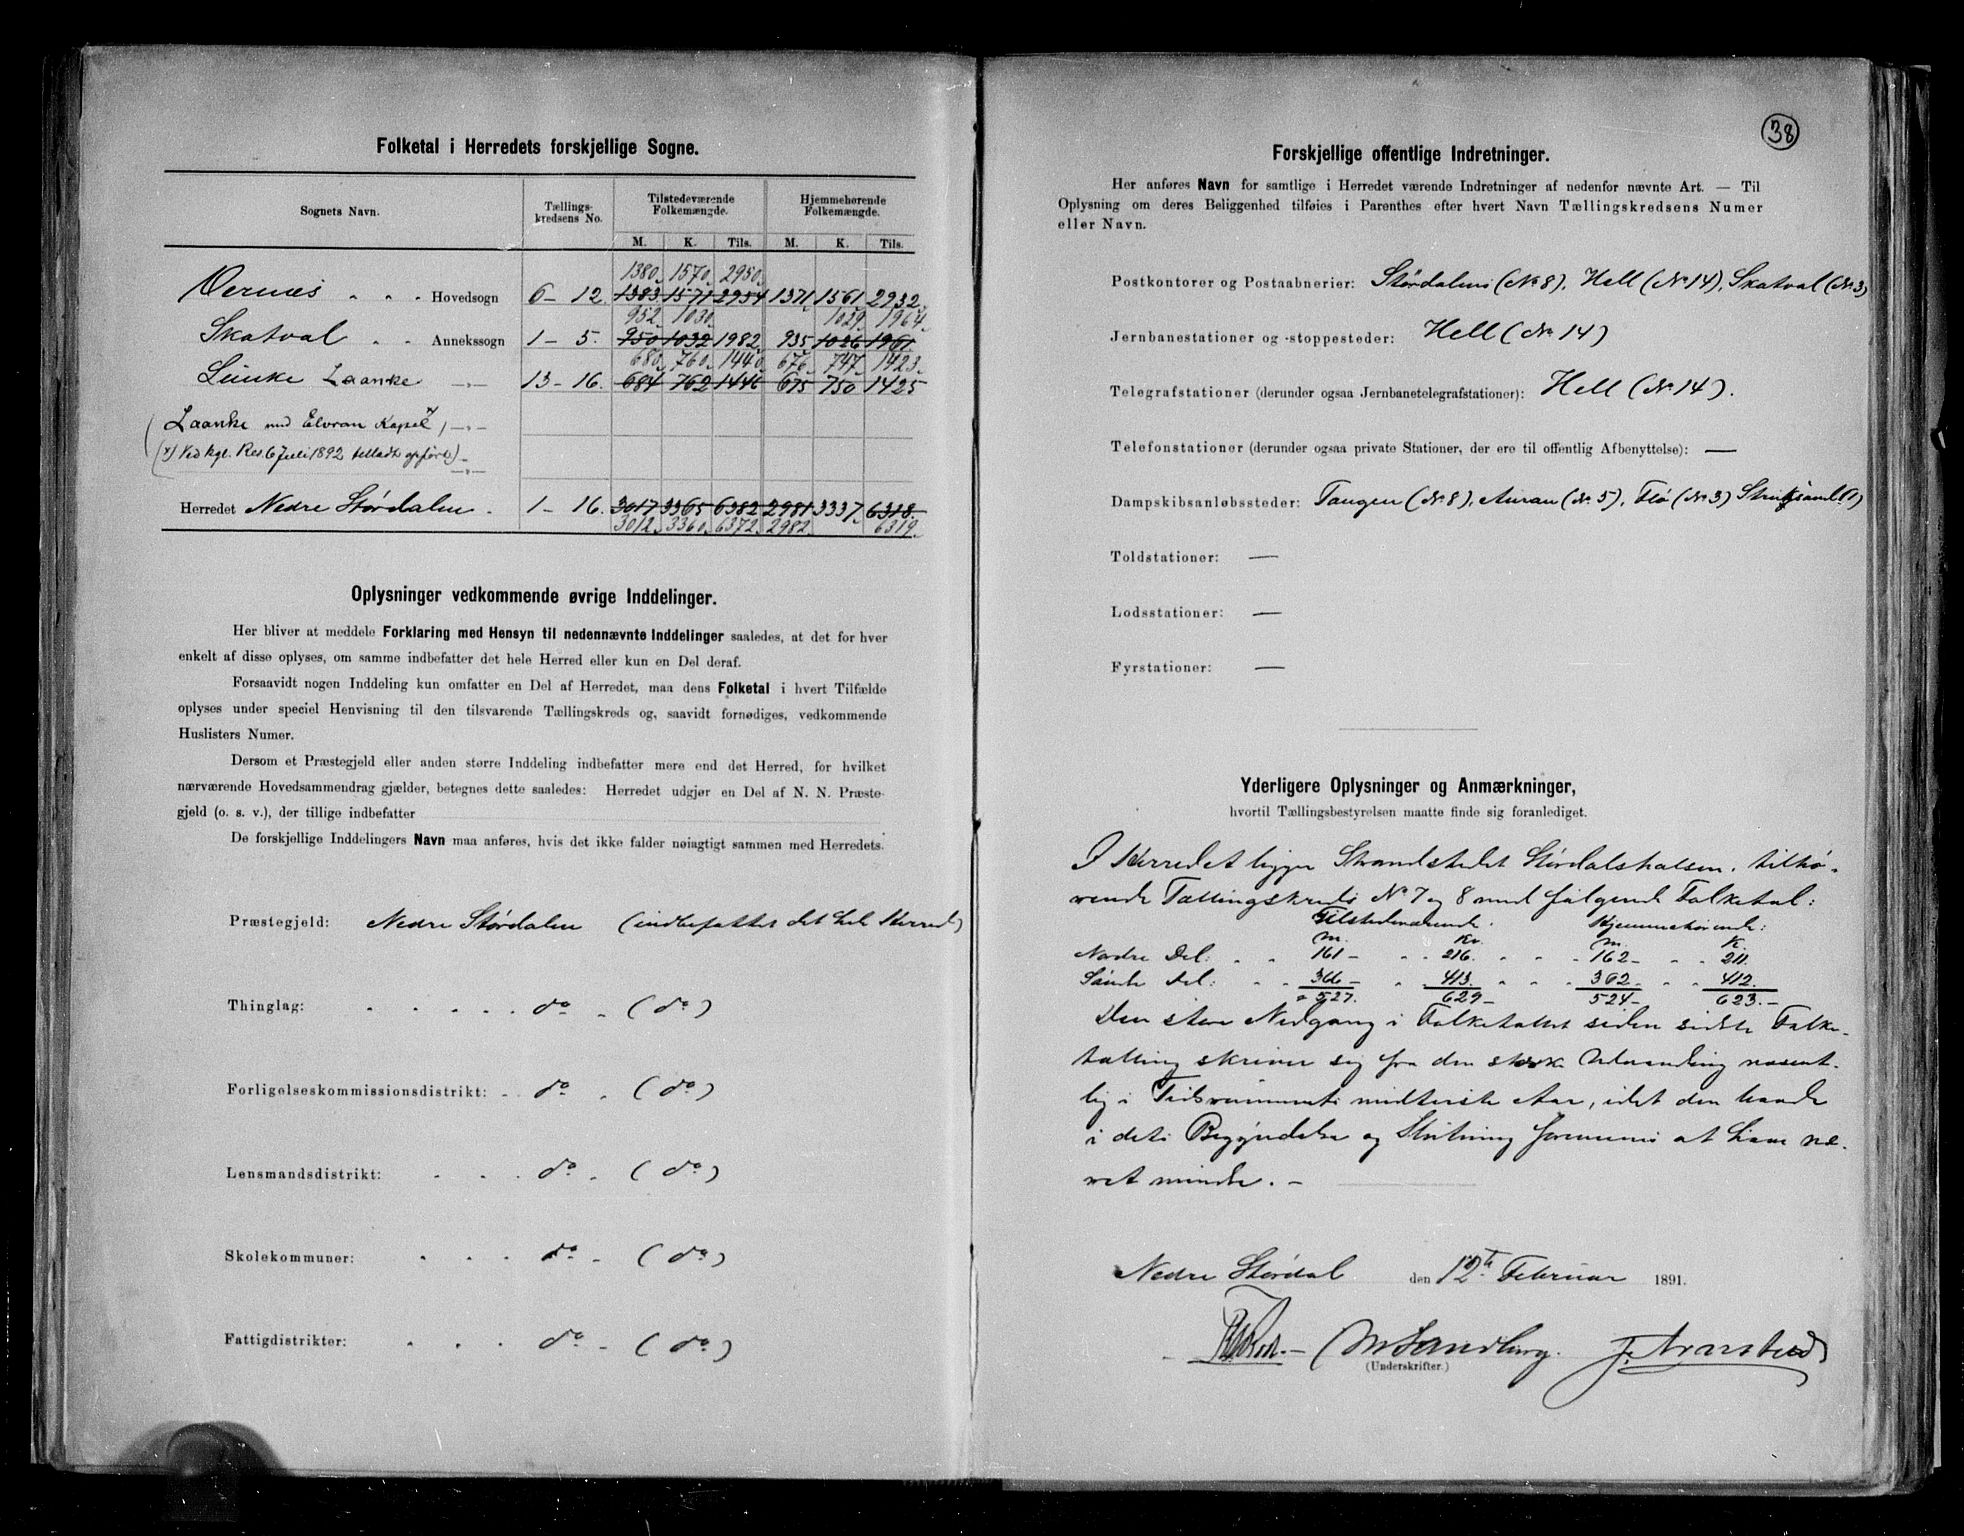 Folketal i Herredets forskjellige Sogne.
Sognets Navn. Tællings-kredsens No. Tilstedeværende Folkemængde. Hjemmehørende Folkemængde.
M. K. Tils. M. K. Tils.
1380. 1570. 2950.
Værnes " " Hovedsogn 6 - 12. 1383 1571 2954 1371 1561 2932.
952. 1030. 1029. 1964.
Skatval " " Annekssogn 1 - 5. 950 1032 1982 935 1026 1961
680. 760. 1440. 676. 747. 1423.
Laanke —„— 13 - 16. 684 762 1446 675 750 1425
(Laanke med Elvran Kapel x) —„—
(x) Ved kgl. Res. 6 Juli 1892 tilladt opført) —„—
Herredet Nedre Størdalen. 1 - 16. 3017 3365 6382 2981 3337. 6318.
3012. 3360. 6372. 2982. 6319.
Oplysninger vedkommende øvrige Inddelinger.
Her bliver at meddele Forklaring med Hensyn til nedennævnte Inddelinger saaledes, at det for hver
enkelt af disse oplyses, om samme indbefatter det hele Herred eller kun en Del deraf.
Forsaavidt nogen Inddeling kun omfatter en Del af Herredet, maa dens Folketal i hvert Tilfælde
oplyses under speciel Henvisning til den tilsvarende Tællingskreds og, saavidt fornødiges, vedkommende
Huslisters Numer.
Dersom et Præstegjeld eller anden større Inddeling indbefatter mere end det Herred, for hvilket
nærværende Hovedsammendrag gjælder, betegnes dette saaledes: Herredet udgjør en Del af N. N. Præste-
gjeld (o. s. v.), der tillige indbefatter
De forskjellige Inddelingers Navn maa anføres, hvis det ikke falder nøiagtigt sammen med Herredets.
Præstegjeld: Nedre Størdalen (indbefatter det hele Herred)
Thinglag: do. (do.)
Forligelseskommissionsdistrikt: do. (do.)
Lensmandsdistrikt: do. (do.)
Skolekommuner: do. (do.)
Fattigdistrikter: do. (do.)
38
Forskjellige offentlige Indretninger.
Her anføres Navn for samtlige i Herredet værende Indretninger af nedenfor nævnte Art. — Til
Oplysning om deres Beliggenhed tilføies i Parenthes efter hvert Navn Tællingskredsens Numer
eller Navn.
Postkontorer og Postaabnerier: Størdalen (No 8), Hell (No 14), Skatval (No 3)
Jernbanestationer og -stoppesteder: Hell (No 14)
Telegrafstationer (derunder ogsaa Jernbanetelegrafstationer): Hell (No 14).
Telefonstationer (derunder ogsaa private Stationer, der ere til offentlig Afbenyttelse): —
Dampskibsanløbssteder: Tangen (No 8), Auran (No 5), Flø (No 3)
Toldstationer: —
Lodsstationer: —
Fyrstationer: —
Yderligere Oplysninger og Anmærkninger,
hvortil Tællingsbestyrelsen maatte finde sig foranlediget.
I Herredet ligger Strandstedet Størdalshalsen, tilhø-
rende Tællingskreds No 7 og 8 med følgende Folketal:
Tilstedeværende. Hjemmehørende:
m. Kv. m. K.
Nordre Del: 161 — 216. 162 — 211.
Søndre Del: 366 — 413. 362 — 412.
527. 629 — 524 — 623. —
Den store Nedgang i Folketallet siden sidste Folke-
tælling skriver sig fra den stærke Udvandring væsent-
lig i Tidsrummets midterste Aar, idet den havde
i dets Begyndelse og Slutning formenes at have væ-
ret mindre. —
Nedre Størdal den 12te Februar 1891.
M Sandborg. J. Arnstad
(Underskrifter.)